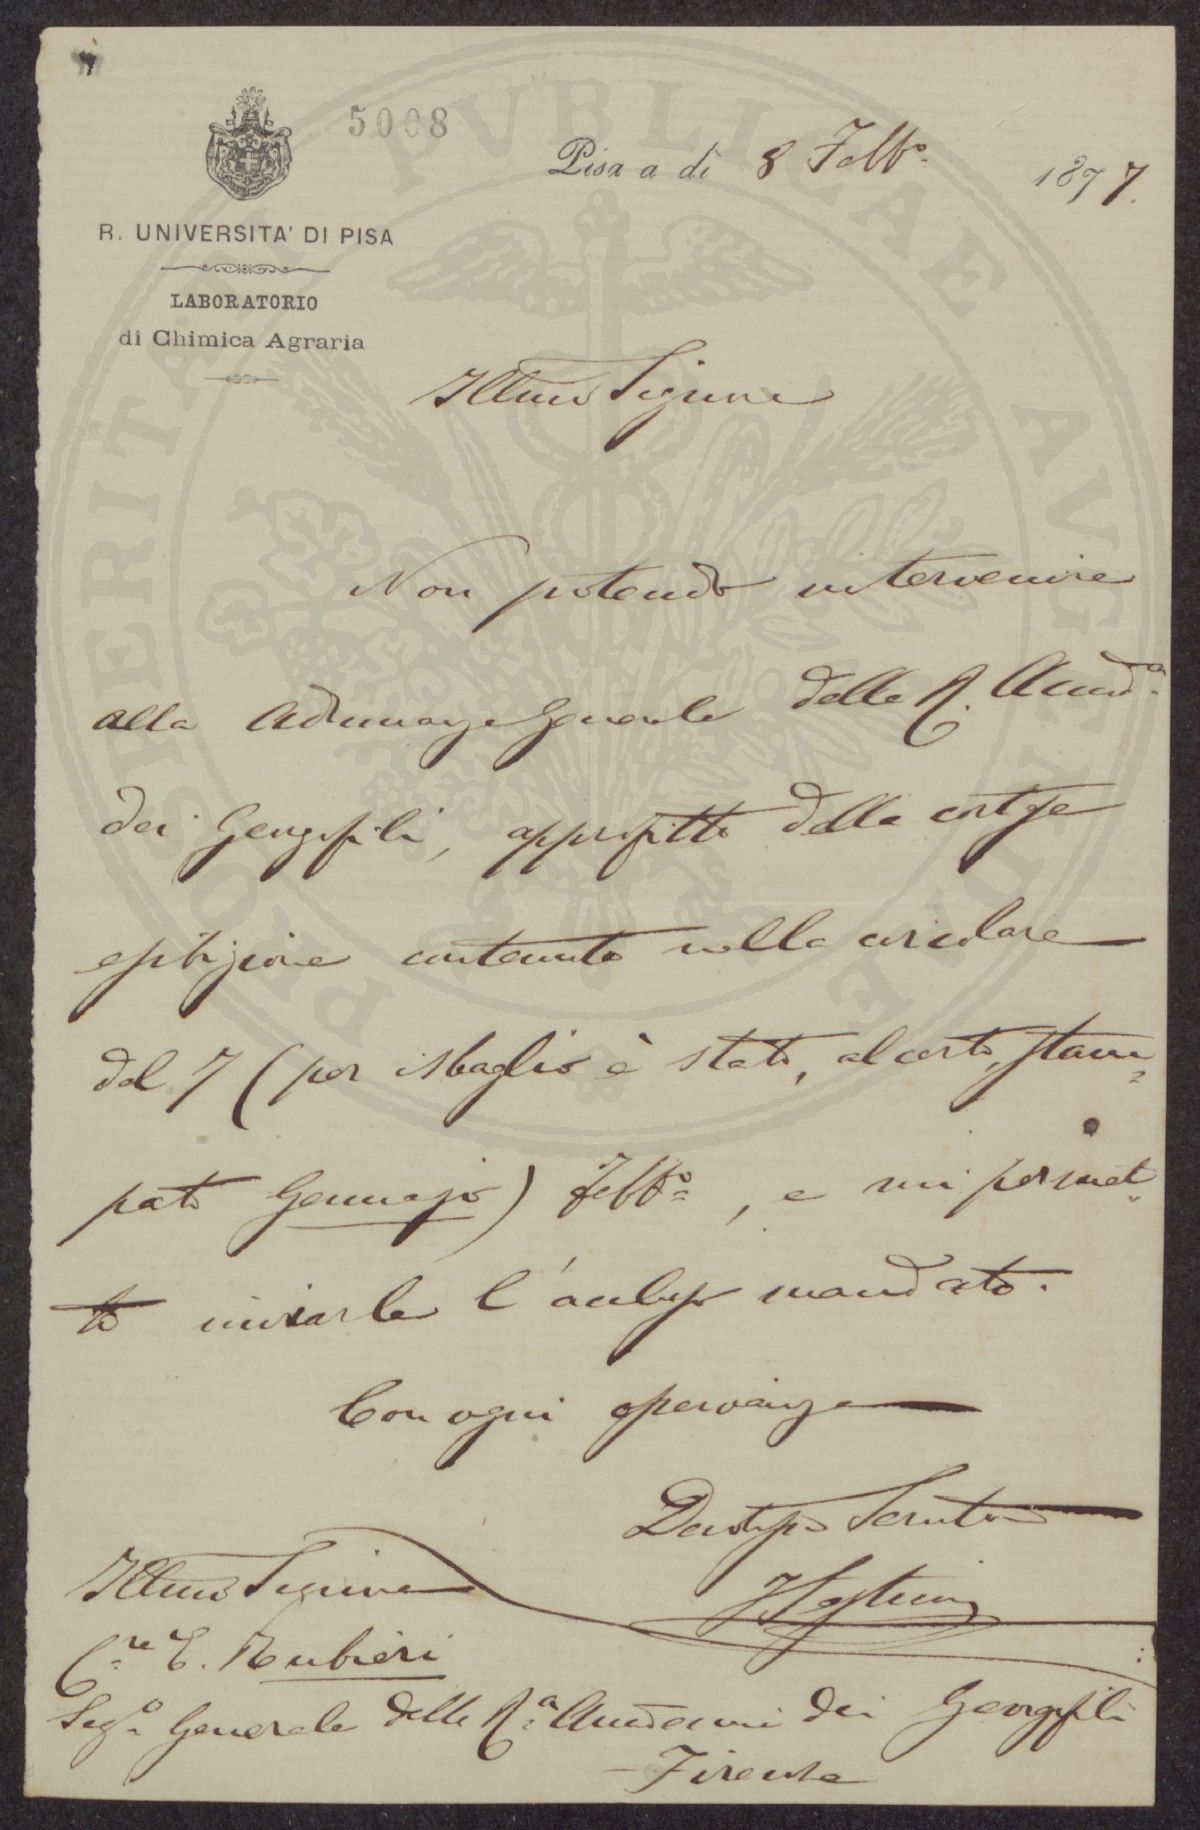 5008
Pisa a dì 8 Febb.º 1877.
R. UNIVERSITA' DI PISA
LABORATORIO
di Chimica Agraria
Illmo Signore
Non potendo intervenire
alla Adunanza Generale della R. Accad.ª
dei Georgofili, approfitto della cortese
esibizione contenuta nella circolare
del 7 (per isbaglio è stato, al certo, stam=
pato Gennajo) Febb.º, e mi permet=
to inviarle l'acchiuso mandato.
Con ogni osservanza
Devotisso Servitore
Illmo Signore
C.re E. Rubieri
Seg.º Generale della R.ª Accademia dei Georgofili
Firenze
PROSPERITATI PVBLICAE AVGENDAE